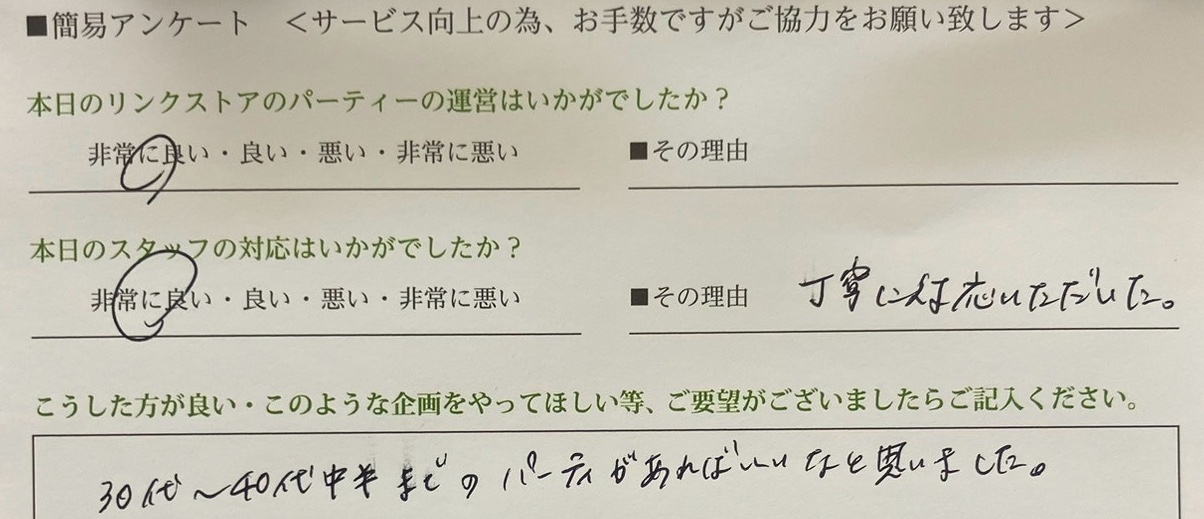 ■簡易アンケート ＜サービス向上の為、お手数ですがご協力をお願い致します＞
本日のリンクストアのパーティーの運営はいかがでしたか？
非常に良い・良い・悪い・非常に悪い ■その理由
本日のスタッフの対応はいかがでしたか？
非常に良い・良い・悪い・非常に悪い ■その理由 丁寧に対応いただいた。
こうした方が良い・このような企画をやってほしい等、ご要望がございましたらご記入ください。
30代〜40代中半までのパーティがあればいいなと思いました。